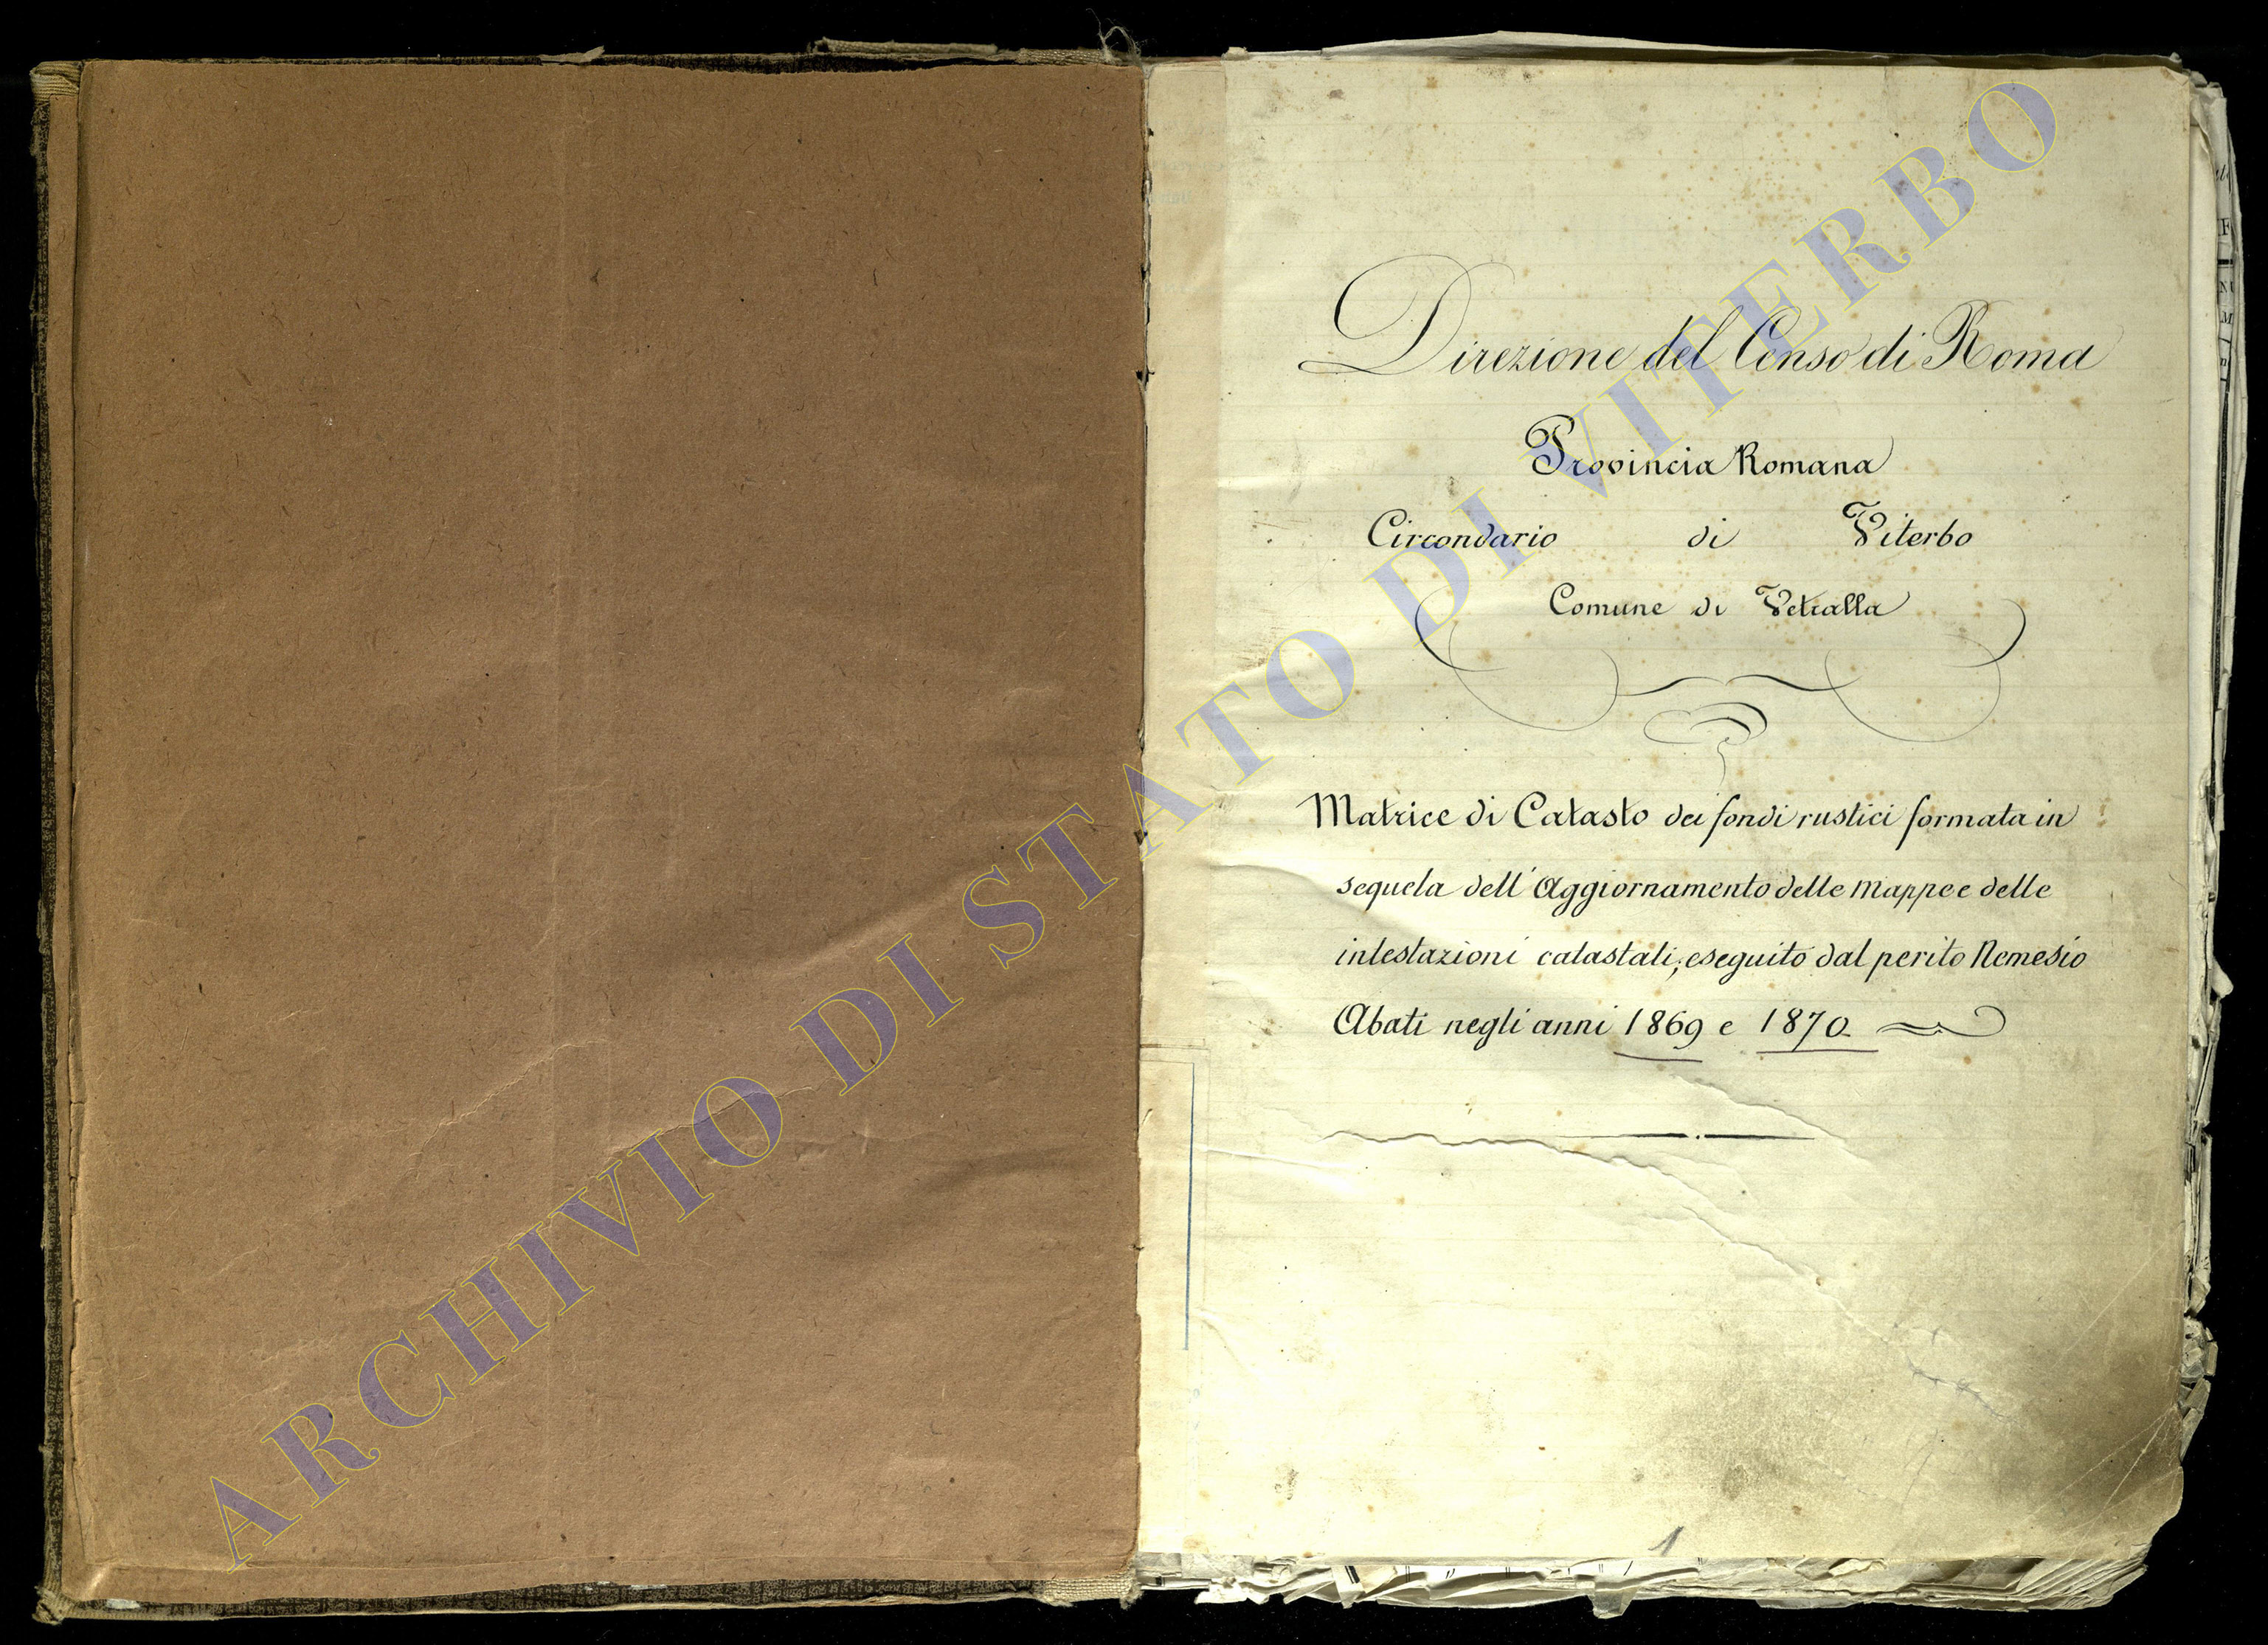 Direzione del Censo di Roma
Provincia Romana
Circondario di Viterbo
Comune di Vetralla
Matrice di Catasto dei fondi rustici formata in
sequela dell'Aggiornamento delle mappe e delle
intestazioni catastali, eseguito dal perito Nemesio
Abati negli anni 1869 e 1870
1
ARCHIVIO DI STATO DI VITERBO